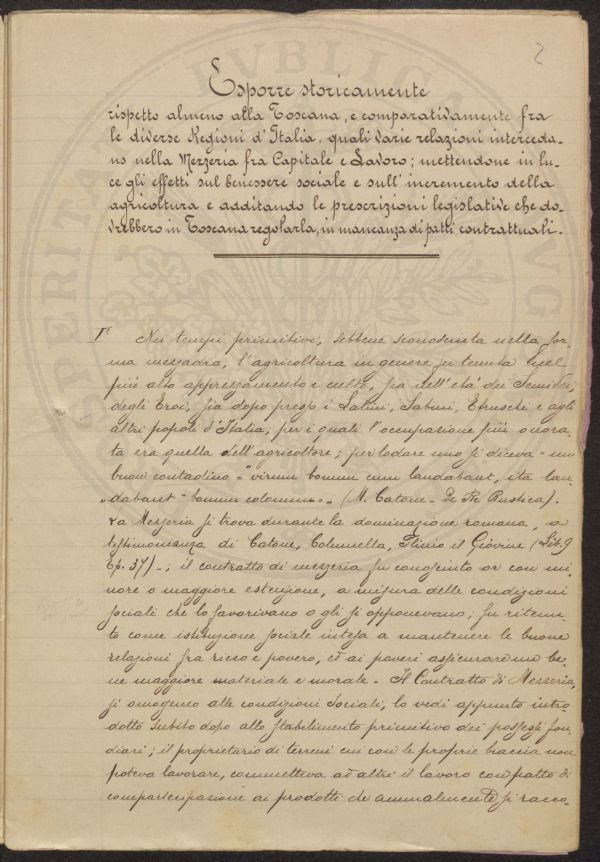 2
Esporre storicamente
rispetto almeno alla Toscana, e comparativamente fra
le diverse Regioni d'Italia, quali varie relazioni interceda-
no nella Mezzeria fra Capitale e Lavoro; mettendone in lu-
ce gli effetti sul benessere sociale e sull'incremento della
agricoltura e additando le prescrizioni legislative che do-
vrebbero in Toscana regolarla, in mancanza di patti contrattuali.-
Nei tempi primitivi, sebbene sconosciuta nella for-
ma mezzadra, l'agricoltura in genere fu tenuta nel
più alto apprezzamento e culto, sia nell'età dei Semidei,
degli Eroi, sia dopo presso i Latini, Sabini, Etruschi e agli
altri popoli d'Italia, per i quali l'occupazione più onora-
ta era quella dell'agricoltore; per lodare uno si diceva = un
buon contadino = "virum bonum cum laudabant, ita lau-
"dabant = bonum colonum = " (M. Catone - De Re Rustica).
La Mezzeria si trova durante la dominazione romana, a
testimonianza di Catone, Columella, Plinio il Giovine (Lib. 9
Ep. 37) -; il contratto di mezzeria fu conosciuto or con mi-
nore o maggiore estensione, a misura delle condizioni
sociali che lo favorivano o gli si opponevano; fu ritenu-
to come istituzione sociale intesa a mantenere le buone
relazioni fra ricco e povero, ed ai poveri assicurare un be-
ne maggiore materiale e morale - Il Contratto di Mezzeria,
sì omogeneo alle condizioni sociale, lo vedi appunto intro-
dotto subito dopo allo stabilimento primitivo dei possessi fon-
diari; il proprietario di terreni cui con le proprie braccia non
poteva lavorare, commetteva ad altri il lavoro con patto di
compartecipazione ai prodotti che annualmente si racco-